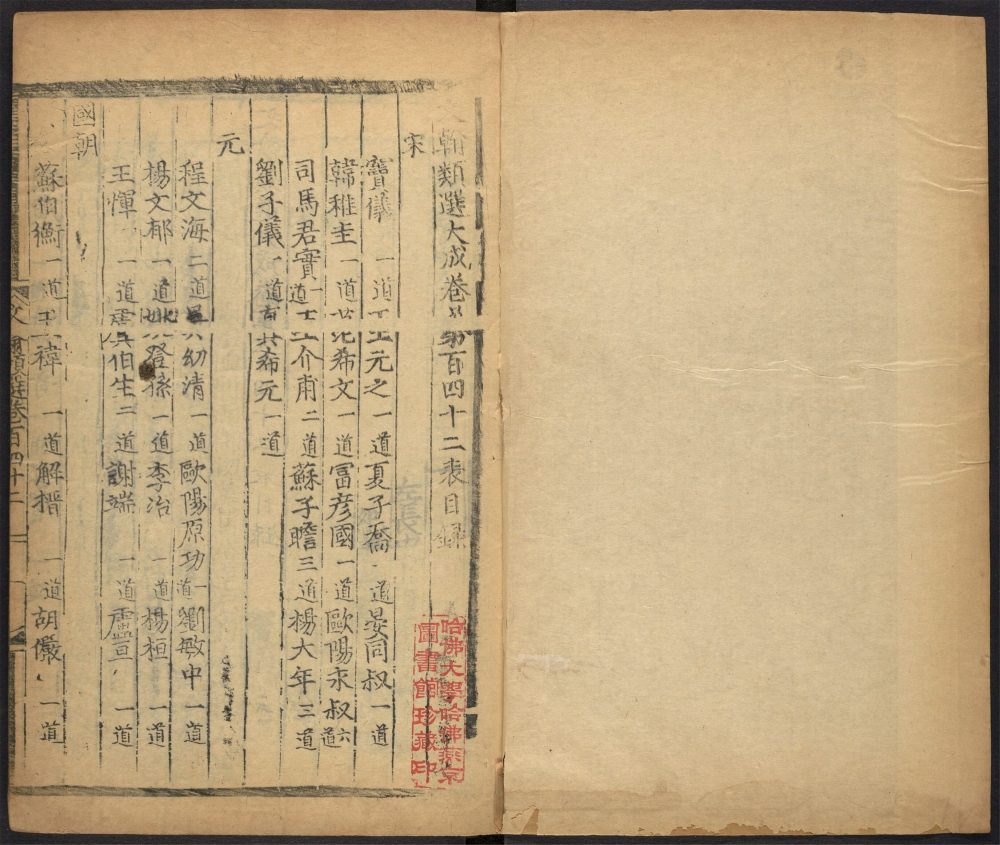 翰類選大成卷第百四十二表目錄
宋
竇儀一道王元之一道夏子喬一道晏同叔一道
韓稚圭一道范希文一道富彦國一道歐陽永叔六道
司馬君實一道王介甫二道蘇子瞻三道楊大年三道
劉子儀一道真希元一道
元
程文海二道吳幼清一道歐陽原功一道劉敏中一道
楊文郁一道姚登孫一道李冶一道楊桓一道
王惲一道虞伯生二道謝端一道盧亘一道
國朝
蘇伯衡一道王禕一道解搢一道胡儼一道
文翰類選卷一百四十二
哈佛大學哈佛燕京
圖書館珍藏印